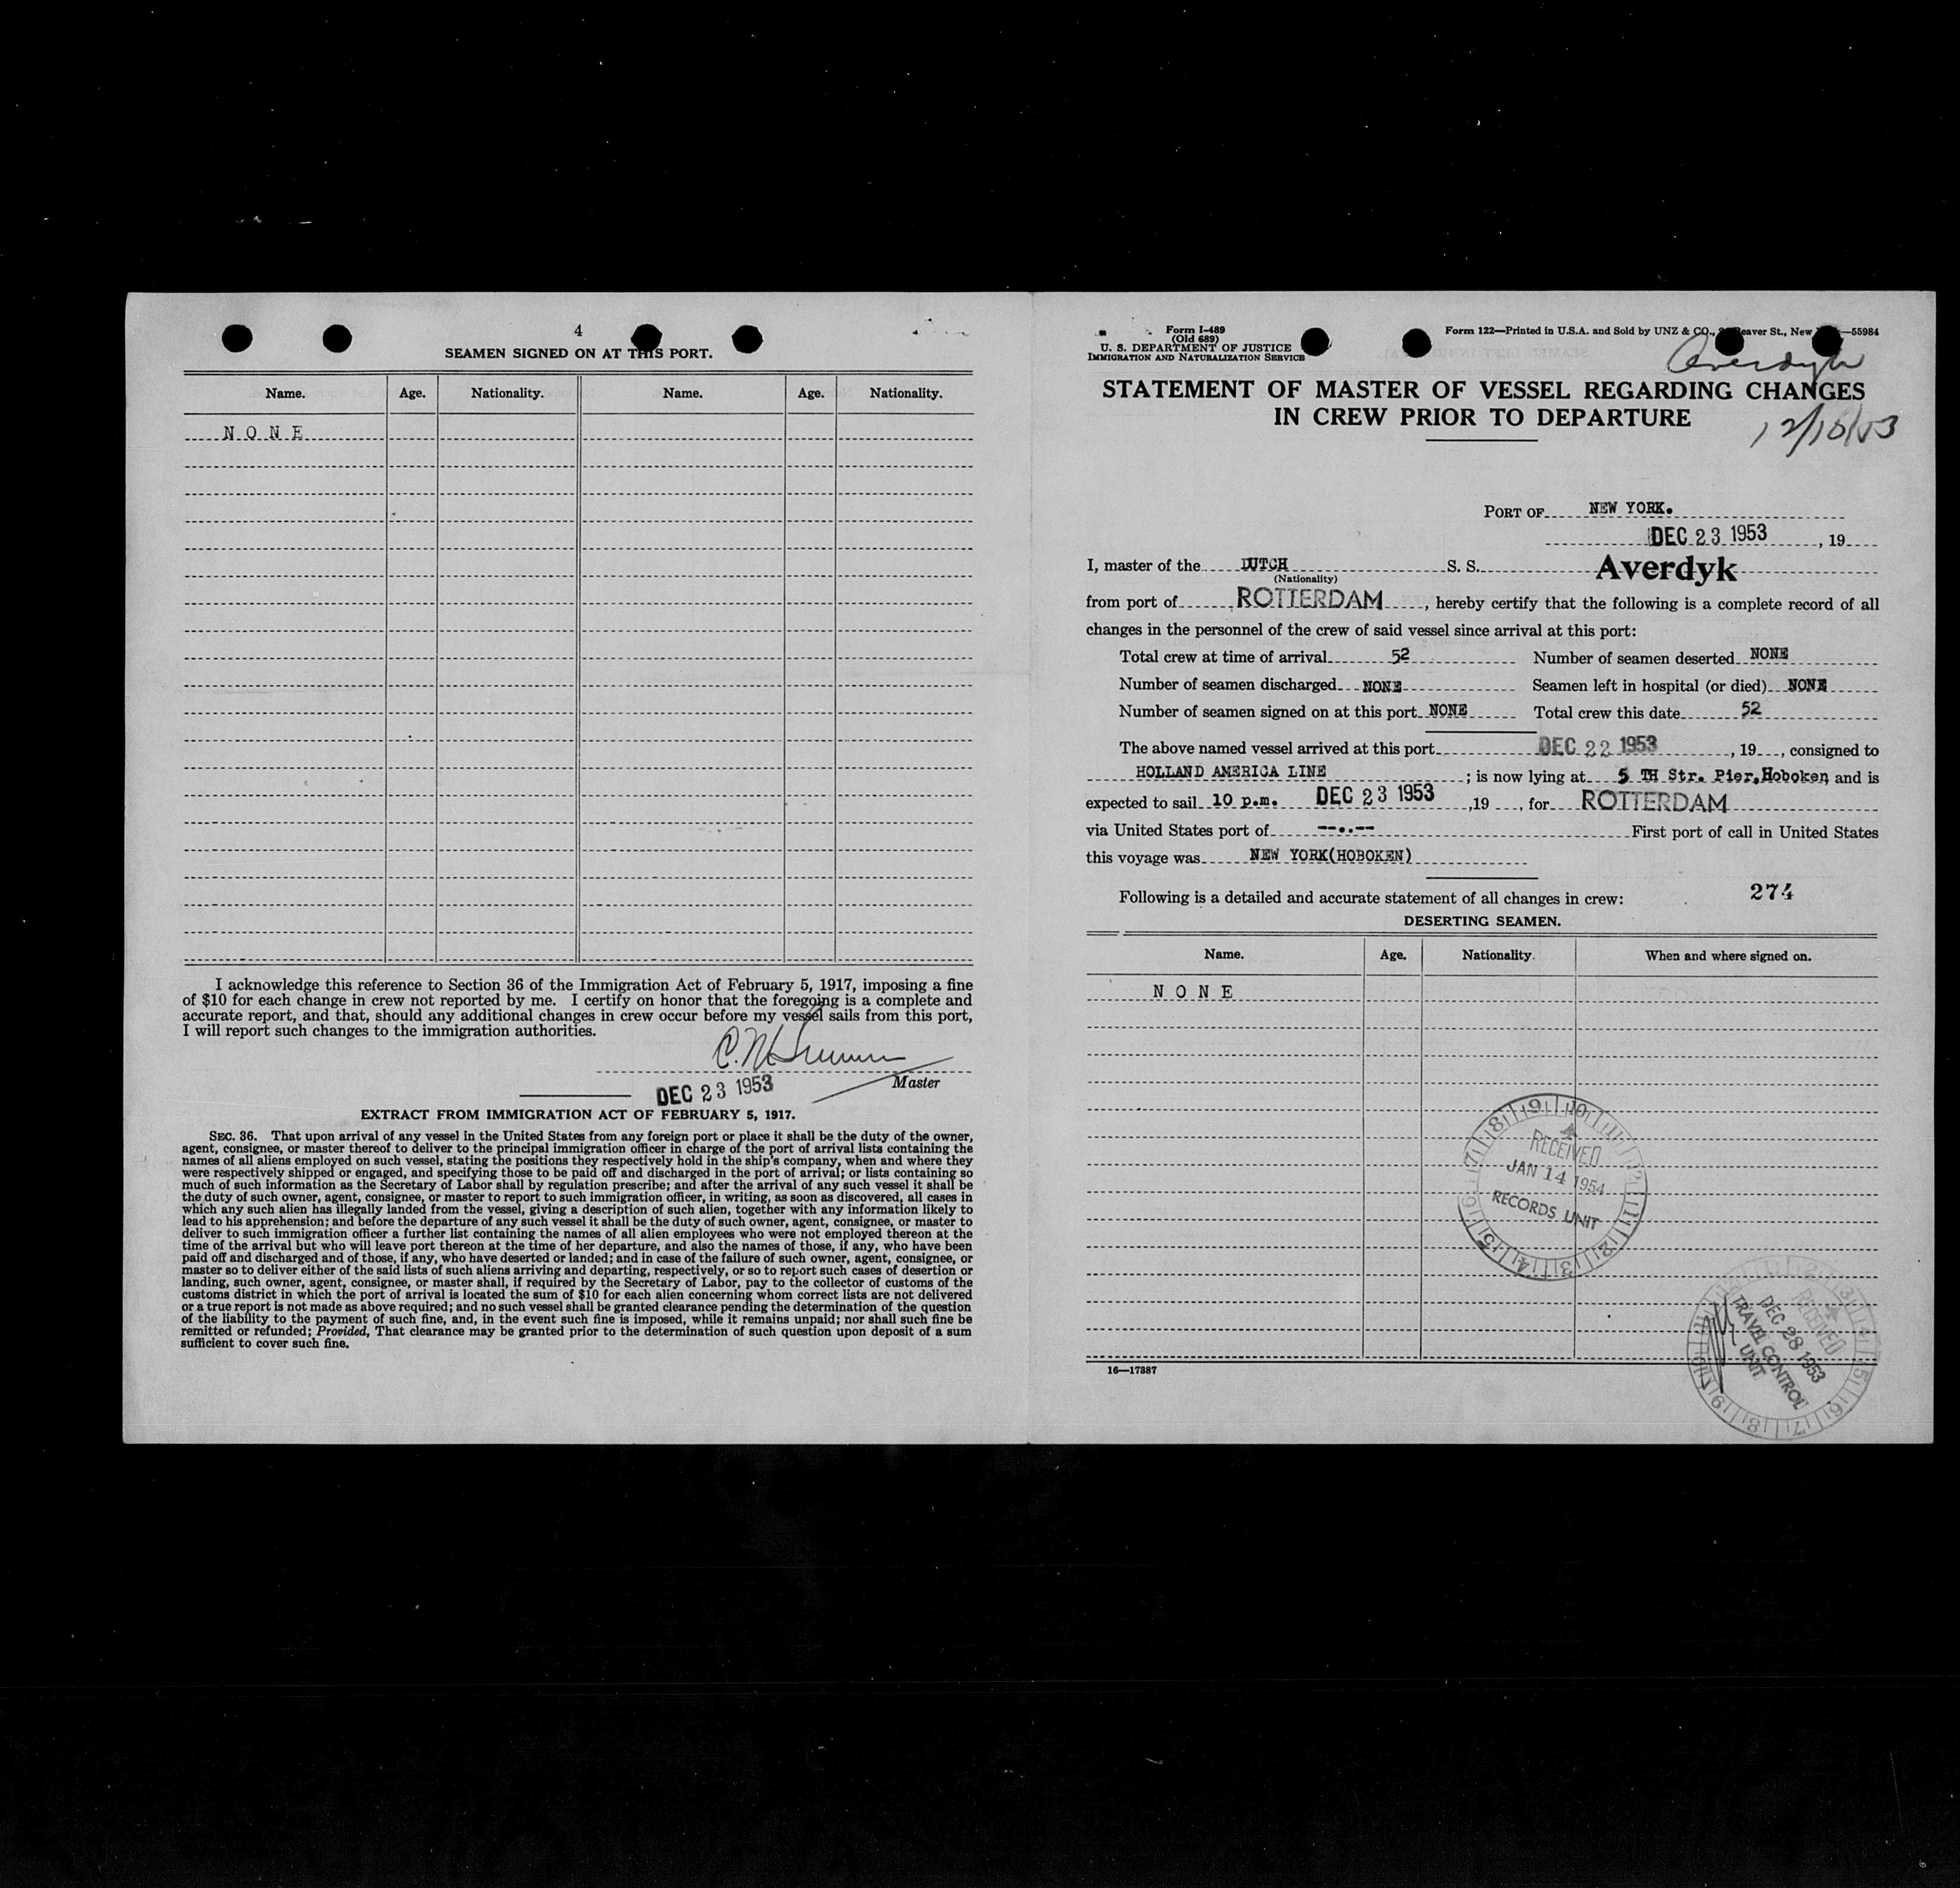 4
SEAMEN SIGNED ON AT THIS PORT.
Name. Age. Nationality. Name. Age. Nationality.
NONE
I acknowledge this reference to Section 36 of the Immigration Act of February 5, 1917, imposing a fine
of $10 for each change in crew not reported by me. I certify on honor that the foregoing is a complete and
accurate report, and that, should any additional changes in crew occur before my vessel sails from this port,
I will report such changes to the immigration authorities.
Master
DEC 23 1953
EXTRACT FROM IMMIGRATION ACT OF FEBRUARY 5, 1917.
SEC. 36. That upon arrival of any vessel in the United States from any foreign port or place it shall be the duty of the owner,
agent, consignee, or master thereof to deliver to the principal immigration officer in charge of the port of arrival lists containing the
names of all aliens employed on such vessel, stating the positions they respectively hold in the ship's company, when and where they
were respectively shipped or engaged, and specifying those to be paid off and discharged in the port of arrival; or lists containing so
much of such information as the Secretary of Labor shall by regulation prescribe; and after the arrival of any such vessel it shall be
the duty of such owner, agent, consignee, or master to report to such immigration officer, in writing, as soon as discovered, all cases in
which any such alien has illegally landed from the vessel, giving a description of such alien, together with any information likely to
lead to his apprehension; and before the departure of any such vessel it shall be the duty of such owner, agent, consignee, or master to
deliver to such immigration officer a further list containing the names of all alien employees who were not employed thereon at the
time of the arrival but who will leave port thereon at the time of her departure, and also the names of those, if any, who have been
paid off and discharged and of those, if any, who have deserted or landed; and in case of the failure of such owner, agent, consignee, or
master so to deliver either of the said lists of such aliens arriving and departing, respectively, or so to report such cases of desertion or
landing, such owner, agent, consignee, or master shall, if required by the Secretary of Labor, pay to the collector of customs of the
customs district in which the port of arrival is located the sum of $10 for each alien concerning whom correct lists are not delivered
or a true report is not made as above required; and no such vessel shall be granted clearance pending the determination of the question
of the liability to the payment of such fine, and, in the event such fine is imposed, while it remains unpaid; nor shall such fine be
remitted or refunded; Provided, That clearance may be granted prior to the determination of such question upon deposit of a sum
sufficient to cover such fine.
Form I-489
(Old 689)
U. S. DEPARTMENT OF JUSTICE
IMMIGRATION AND NATURALIZATION SERVICE
Form 122—Printed in U.S.A. and Sold by UNZ & CO., St., New —55984
Averdyk
STATEMENT OF MASTER OF VESSEL REGARDING CHANGES
IN CREW PRIOR TO DEPARTURE
PORT OF NEW YORK.
DEC 23 1953, 19
I, master of the DUTCH S. S. Averdyk
(Nationality)
from port of ROTTERDAM, hereby certify that the following is a complete record of all
changes in the personnel of the crew of said vessel since arrival at this port:
Total crew at time of arrival 52 Number of seamen deserted NONE
Number of seamen discharged NONE Seamen left in hospital (or died) NONE
Number of seamen signed on at this port NONE Total crew this date 52
The above named vessel arrived at this port DEC 22 1953, 19, consigned to
HOLLAND AMERICA LINE; is now lying at 5 TH Str. Pier, Hoboken and is
expected to sail 10 p.m. DEC 23 1953, 19, for ROTTERDAM
via United States port of --..-- First port of call in United States
this voyage was NEW YORK(HOBOKEN)
Following is a detailed and accurate statement of all changes in crew: 274
DESERTING SEAMEN.
Name. Age. Nationality. When and where signed on.
NONE
RECEIVED
JAN 14 1954
RECORDS UNIT
RECEIVED
DEC 28 1953
TRAVEL CONTROL
UNIT
16—17887